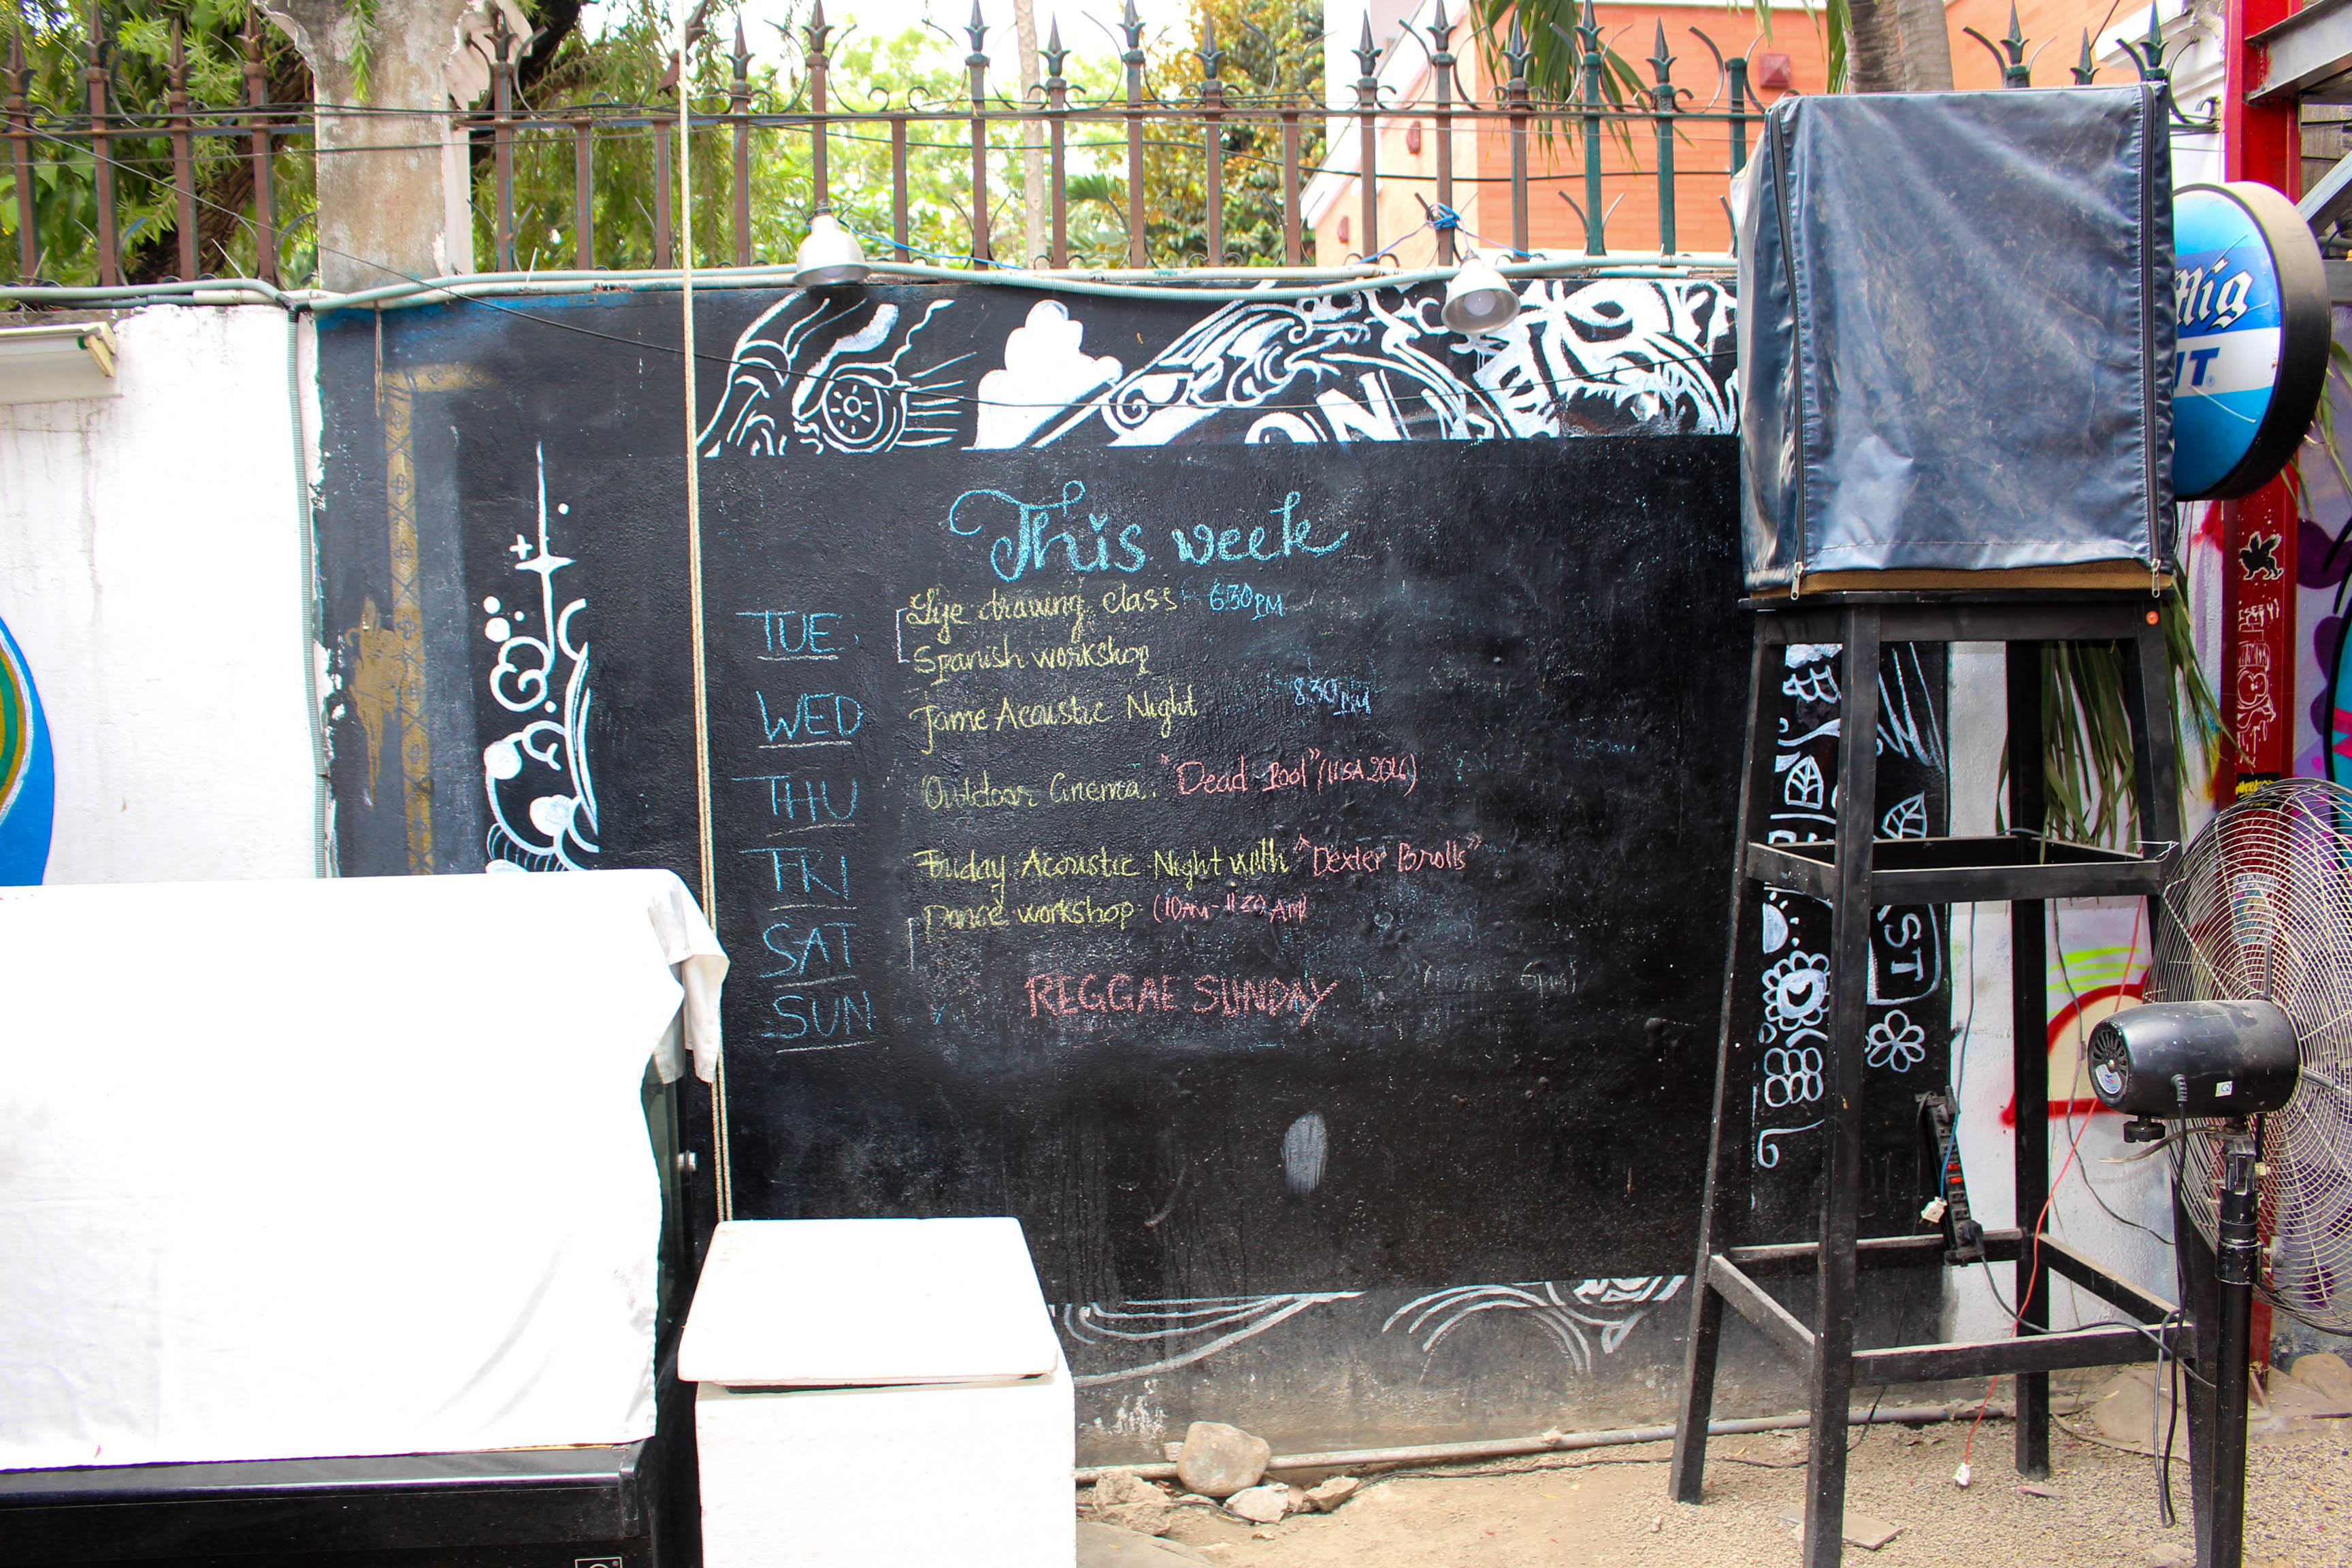 ON
Mig
IT
This week
TUE. Lije drawing class 6:30PM
Spanish workshop
WED Jame Acoustic Night 8:30PM
THU Outdoor Cinema. "Dead Pool" (USA 2016)
FRI Friday Acoustic Night with "Dexter Brolls"
SAT Dance workshop (10AM-11:30AM)
SUN REGGAE SUNDAY
ST